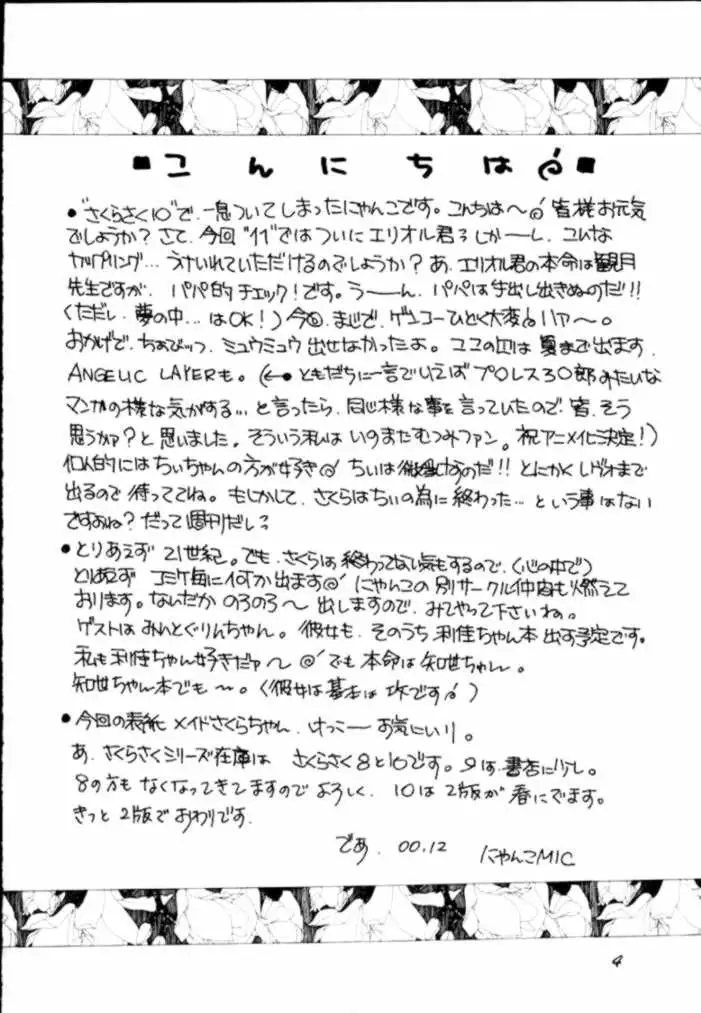 ■こんにちは■
●"さくらさく10"で、一息ついてしまったにゃんこです。こんちは〜 皆様お元気
でしょうか？さて、今回"11"ではついにエリオル君 しか――し、こんな
カップリング… うけいれていただけるのでしょうか？あ、エリオル君の本命は観月
先生ですが、パパ的チェック！です。う――ん、パパは手出し出きぬのだ!!
(ただし、夢の中…はOK！) 今回、まじで、ゲンコーひどく大変 ハァ〜。
おかげで、ちょびっツ、ミュウミュウ出せなかったよ。 は夏まで出ます、
ANGELIC LAYERも。(←●ともだちに一言でいえばプロレス3○郎みたいな
マンガの様な気がする…と言ったら、同じ様な事を言っていたので皆、そう
思うかァ？と思いました。そういう私はいのまたむつみファン。祝アニメ化決定！)
個人的にはちぃちゃんの方が好き ちぃは なのだ!! とにかく まで
出るので待っててね。もしかして、さくらはちぃの為に終わった…という事はない
ですよね？だって週刊だし？
●とりあえず 21世紀。でも、さくらは終わってない気もするので、(心の中で)
とりあえず コミケ毎に何か出ます にゃんこの別サークル仲間も燃えて
おります。なんだか のろのろ〜 出しますので、みてやって下さいね。
ゲストは みんとぐりんちゃん。彼女も、そのうち利佳ちゃん本出す予定です。
私も利佳ちゃん好きだァ〜 でも本命は知世ちゃん。
知世ちゃん本でも〜。(彼女は基本は攻です)
●今回の表紙 メイドさくらちゃん、けっこーお気にいり。
あ、さくらさくシリーズ在庫は さくらさく8と10です。9は、書店に少し。
8の方も なくなってきてますので よろしく、10は2版が春にでます。
きっと2版でおわりです。
であ、00.12 にゃんこMIC
4